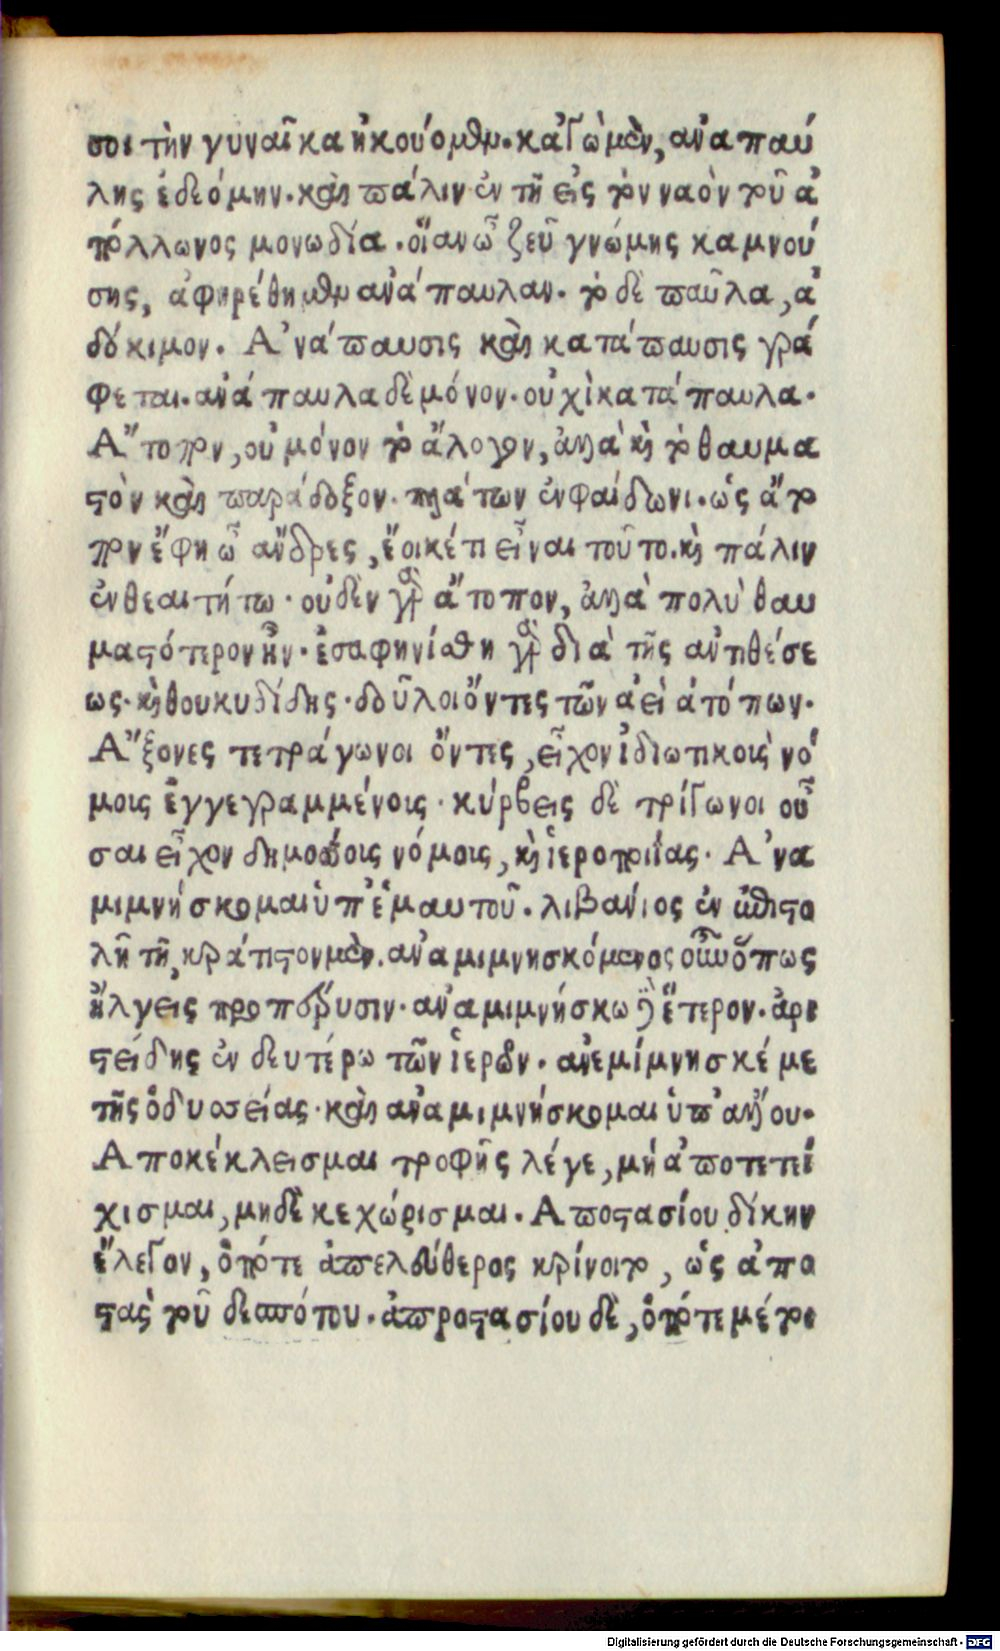 σοι τὴν γυναῖκα ἠκούομεν. κἀγὼ μὲν, ἀναπαύ
λης ἐδεόμην. καὶ πάλιν ἐν τῇ εἰς τὸν ναὸν τοῦ ἀ
πόλλωνος μονωδία. οἵαν ὦ ζεῦ γνώμης καμνού
σης, ἀφηρέθημεν ἀνάπαυλαν. τὸ δὲ παῦλα, ἀ
δόκιμον. Ἀνάπαυσις καὶ κατάπαυσις γρά
φεται. ἀνάπαυλα δὲ μόνον. οὐχὶ κατάπαυλα.
Ἄτοπον, οὐ μόνον τὸ ἄλογον, ἀλλὰ καὶ τὸ θαυμα
στὸν καὶ παράδοξον. πλάτων ἐν φαίδωνι. ὡς ἄτο
πον ἔφη ὦ ἄνδρες, ἔοικέ τι εἶναι τοῦτο. καὶ πάλιν
ἐν θεαιτήτω. οὐδὲν γὰρ ἄτοπον, ἀλλὰ πολὺ θαυ
μαστότερον ἦν. ἐσαφηνίσθη γὰρ διὰ τῆς ἀντιθέσε
ως. καὶ θουκυδίδης. δοῦλοι ὄντες τῶν ἀεὶ ἀτόπων.
Ἄξονες τετράγωνοι ὄντες, εἶχον ἰδιωτικοῖς νό
μοις ἐγγεγραμμένοις. κύρβεις δὲ τρίγωνοι οὖ
σαι εἶχον δημοσίοις νόμοις, καὶ ἱεροποιΐας. Ἀνα
μιμνήσκομαι ὑπ' ἐμαυτοῦ. λιβανίος ἐν ἐπιστο
λῇ τῇ, κράτιστον μὲν. ἀναμιμνησκόμενος οὖν ὅπως
ἤλγεις προπόδυσιν. ἀναμιμνήσκω δὲ ἕτερον. ἀρι
στείδης ἐν δευτέρω τῶν ἱερῶν. ἀνεμίμνησκέ με
τῆς ὀδυσσείας. καὶ ἀναμιμνήσκομαι ὑπ' ἄλλου.
Αποκέκλεισμαι τροφῆς λέγε, μὴ ἀποτετεί
χισμαι, μηδὲ κεχώρισμαι. Αποστασίου δίκην
ἔλεγον, ὁπότε ἀπελεύθερος κρίνοιτο, ὡς ἀπο
στὰς τοῦ δεσπότου. ἀπροστασίου δὲ, ὁπότε μέτοι
Digitalisierung gefördert durch die Deutsche Forschungsgemeinschaft - DFG